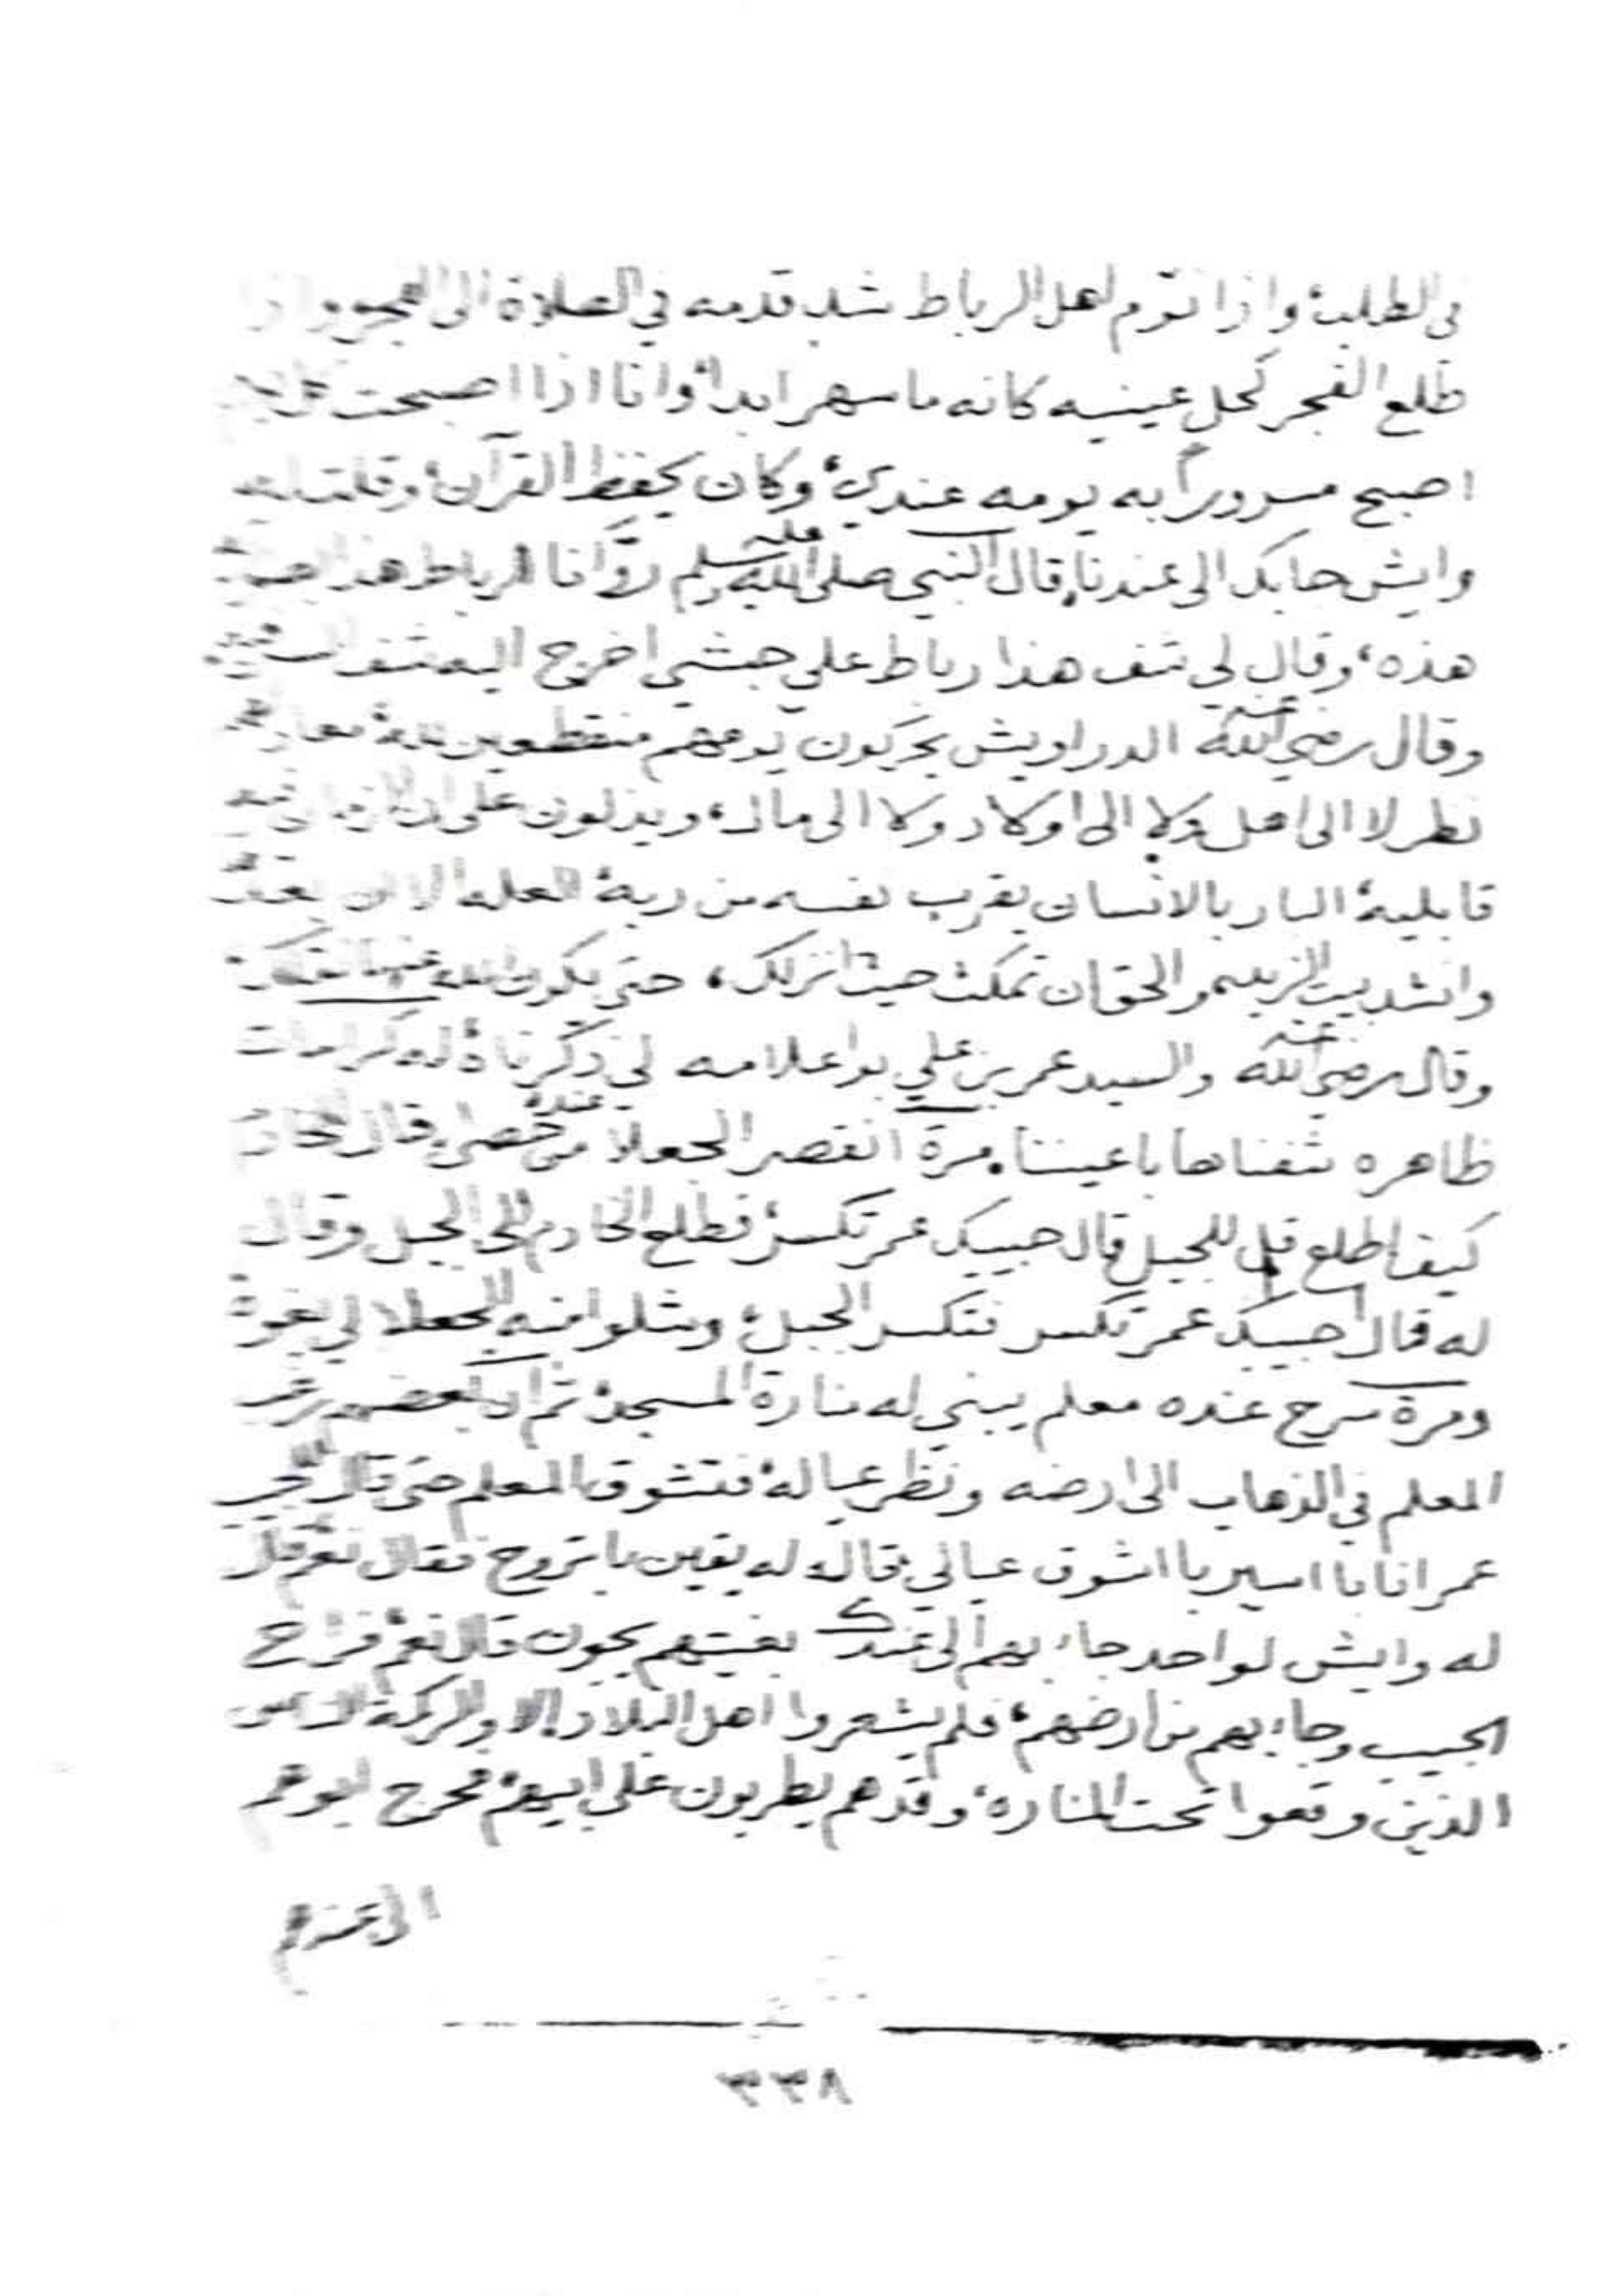 في الطلب، واذا نوّم اهل الرباط شد قدمه في الصلاة الى الفجر واذا
طلع الفجر كحل عينيه كانه ما سهر ابدا، وانا اذا اصبحت
اصبح مسرورا به يومه عندي، وكان يحفظ القرآن، وقلت له
وايش جابك الى عندنا، قال النبي صلى الله عليه وسلم روّانا الرباط هذا
هذه، وقال لي شف هذا رباط علي حبشي اخرج اليه
وقال رضي الله عنه الدراويش يجربون يومهم منقطعين لله، معاد لهم
نظر لا الى اهل ولا الى اولاد ولا الى مال، ويذلون على
قابلية البار بالانسان يقرب نفسه من ربه
وانشد بيت الزبد والحق ان تمكث حيث انزلك، حتى يكون الله عنها نقلك
وقال رضي الله عنه والسيد عمر بن علي بو علامه لي ذكرناه له كرامات
ظاهره شفناها باعيننا. مرة انقصر الجعلا من عنده خصى، قال الخادم
كيف اطلع قل للجبل قال حبيبك عمر تكسر، فطلع الخادم الى الجبل وقال
له قال حبيبك عمر تكسر فتكسر الجبل، وشلوا منه الجعلا لي بغوه
ومرة سرح عنده معلم يبني له منارة المسجد، ثم ان بعضهم رغب
المعلم في الذهاب الى ارضه ونظر عياله، فتشوق المعلم حتى قال للحبيب
عمر انا با اسير با اشوف عيالي، قال له يقين با تروح فقال نعم قال
له وايش لو احد جاء بهم الى عندك بغيتهم يجون قال نعم، فراح
الحبيب وجاء بهم من ارضهم، فلم يشعروا اهل البلاد الا
الذين وقعوا تحت المناره، وقدهم يطربون على ابيهم، فخرج ابوهم
الى عندهم
٣٣٨